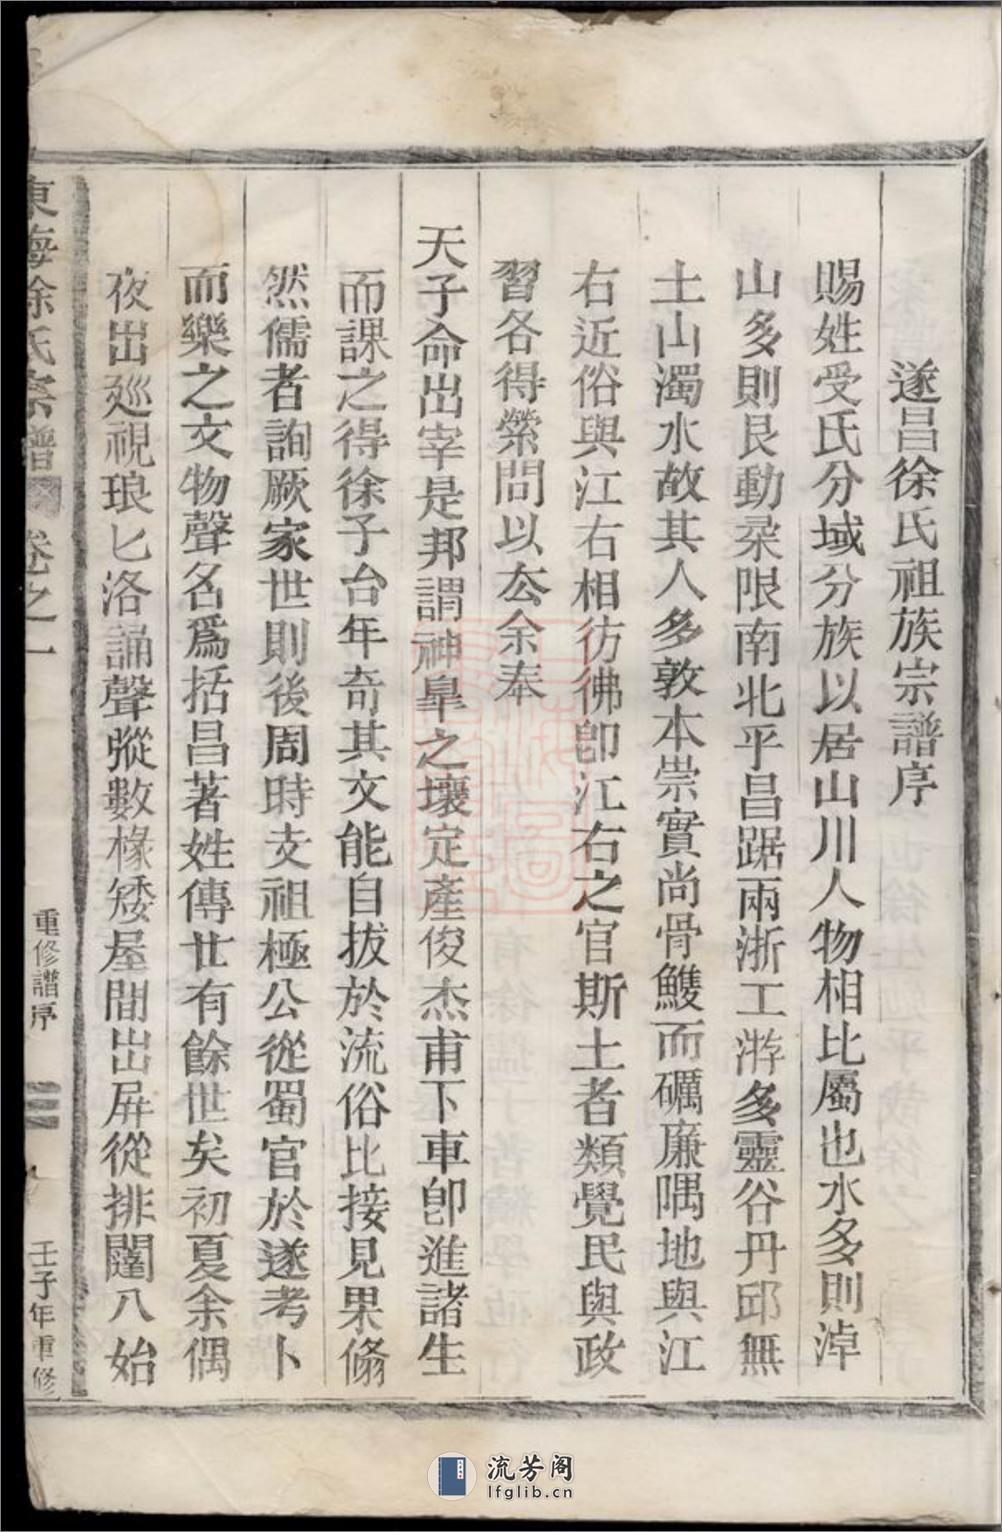 遂昌徐氏祖族宗譜序
賜姓受氏分域分族以居山川人物相比屬也水多則淖
山多則艮動朶限南北平昌踞兩浙工游多靈谷丹邱無
土山濁水故其人多敦本崇實尚骨鱯而礪廉隅地與江
右近俗與江右相彷彿卽江右之官斯土者類覺民與政
習各得縈問以厺余奉
天子命出宰是邦謂神臯之壤定產俊杰甫下車卽進諸生
而課之得徐子台年奇其文能自拔於流俗比接見果翛
然儒者詢厥家世則後周時支祖極公從蜀官於遂考卜
而樂之文物聲名爲括昌著姓傳廿有餘世矣初夏余偶
夜出廵視琅匕洛誦聲摐數椽矮屋間出屏從排闥入始
東海徐氏宗譜
卷之一
重修譜序
三
壬子年重修
流芳阁
lfglib.cn